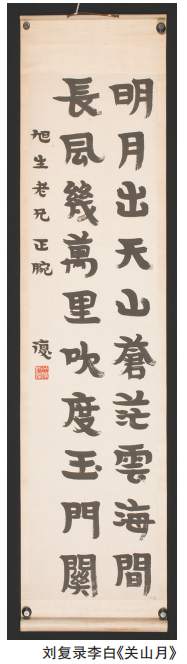 明月出天山蒼茫雲海間
長風幾萬里吹度玉門關
旭生老兄正腕
復
刘复录李白《关山月》